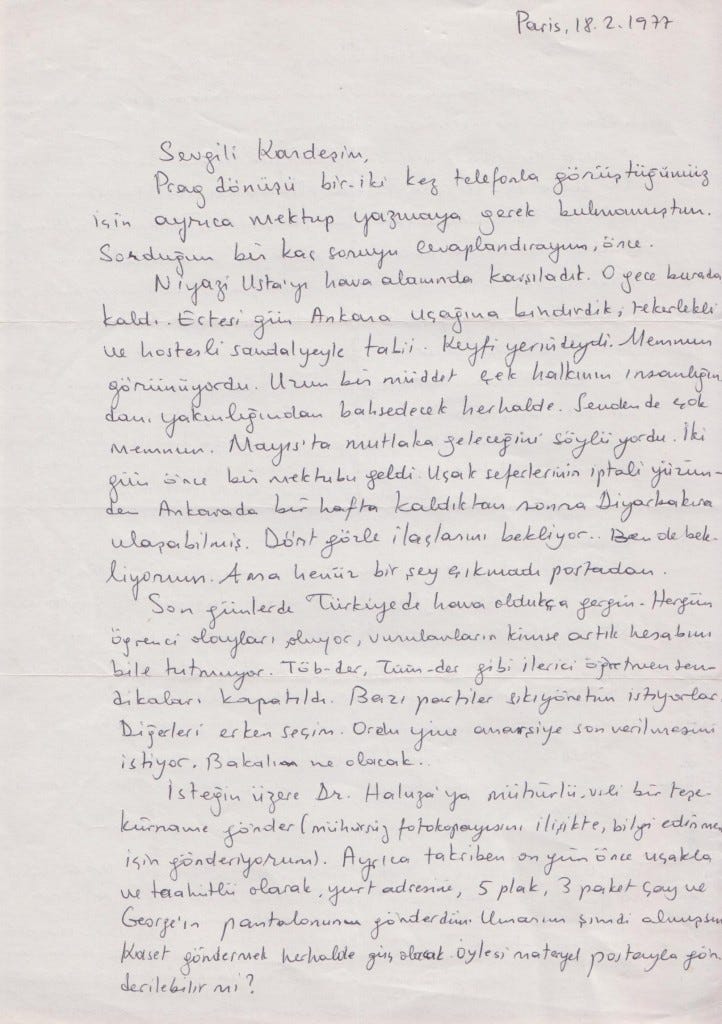 Paris, 18.2.1977
Sevgili Kardeşim,
Prag dönüşü bir-iki kez telefonla görüştüğümüz
için ayrıca mektup yazmaya gerek bulmamıştım.
Sorduğun bir kaç soruyu cevaplandırayım, önce.
Niyazi Usta'yı hava alanında karşıladık. O gece burada
kaldı. Ertesi gün Ankara uçağına bindirdik, tekerlekli
ve hostesli sandalyeyle tabii. Keyfi yerindeydi. Memnun
görünüyordu. Uzun bir müddet çek halkının insanlığın
dan, yakınlığından bahsedecek herhalde. Senden de çok
memnun. Mayıs'ta mutlaka geleceğini söylüyordu. İki
gün önce bir mektubu geldi. Uçak seferlerinin iptali yüzün-
den Ankarada bir hafta kaldıktan sonra Diyarbakıra
ulaşabilmiş. Dört gözle ilaçlarını bekliyor.. Ben de bek-
liyorum. Ama henüz bir şey çıkmadı postadan.
Son günlerde Türkiyede hava oldukça gergin. Hergün
öğrenci olayları oluyor, vurulanların kimse artık hesabını
bile tutmuyor. Töb-der, Tüm-der gibi ilerici öğretmen sen-
dikaları kapatıldı. Bazı partiler sıkıyönetim istiyorlar.
Diğerleri erken seçim. Ordu yine anarşiye son verilmesini
istiyor. Bakalım ne olacak..
İsteğin üzere Dr. Haluza'ya mühürlü bir teşe-
kürname gönder (mühürsüz fotokopayısını ilişikte, bilgi edinmen
için gönderiyorum). Ayrıca takriben on gün önce uçakla
ve taahütlü olarak, yurt adresine, 5 plak, 3 paket çay ve
George'ın pantalonunu gönderdim. Umarım şimdi almışsın
Kaset göndermek herhalde güç olacak. Öylesi materyel postayla gön
derilebilir mi?